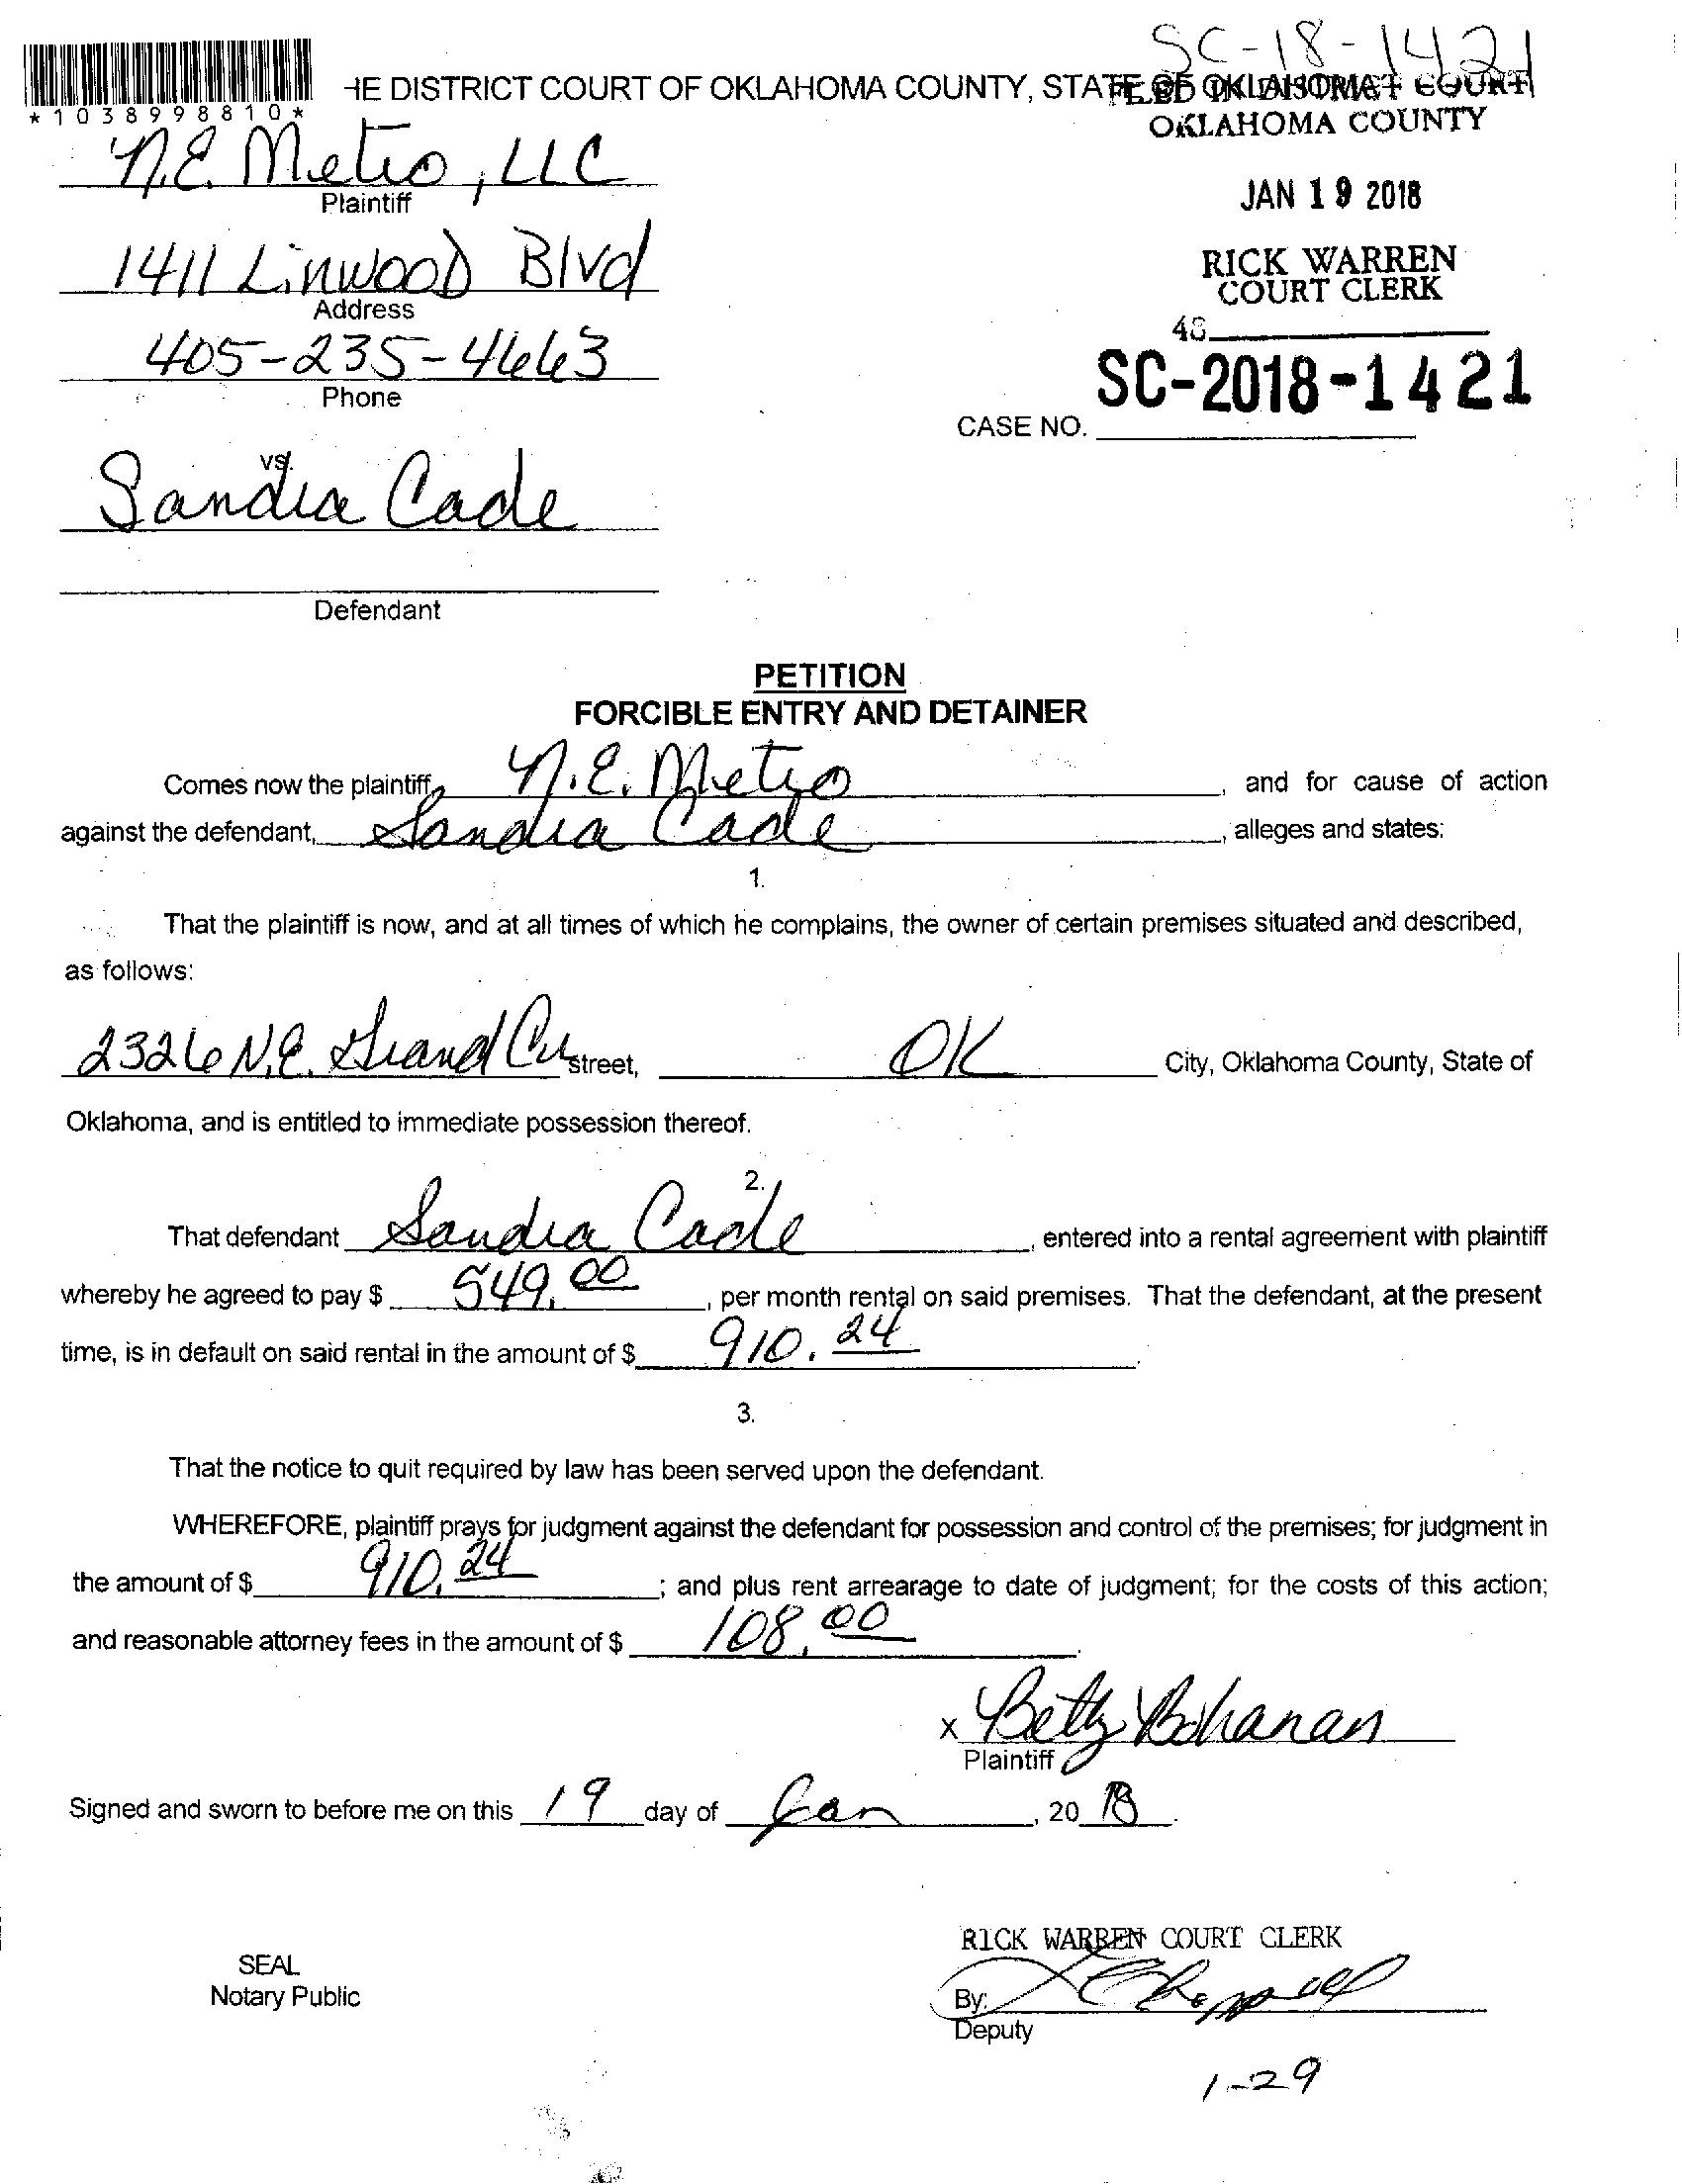 SC-18-1421
HE DISTRICT COURT OF OKLAHOMA COUNTY, STATE OF OKLAHOMA
FILED IN DISTRICT COURT
OKLAHOMA COUNTY
*1038998810*
N.E. Metro, LLC
Plaintiff
JAN 19 2018
1411 Linwood Blvd
Address
RICK WARREN
COURT CLERK
405-235-4663
Phone
48
SC-2018-1421
CASE NO.
vs.
Sandra Cade
Defendant
PETITION
FORCIBLE ENTRY AND DETAINER
Comes now the plaintiff, N.E. Metro, and for cause of action
against the defendant, Sandra Cade, alleges and states:
1.
That the plaintiff is now, and at all times of which he complains, the owner of certain premises situated and described,
as follows:
2326 N.E. Grand Cir street, OK City, Oklahoma County, State of
Oklahoma, and is entitled to immediate possession thereof.
2.
That defendant Sandra Cade, entered into a rental agreement with plaintiff
whereby he agreed to pay $ 549.00, per month rental on said premises. That the defendant, at the present
time, is in default on said rental in the amount of $ 910.24.
3.
That the notice to quit required by law has been served upon the defendant.
WHEREFORE, plaintiff prays for judgment against the defendant for possession and control of the premises; for judgment in
the amount of $ 910.24; and plus rent arrearage to date of judgment; for the costs of this action;
and reasonable attorney fees in the amount of $ 108.00.
x Betty Bohanan
Plaintiff
Signed and sworn to before me on this 19 day of Jan, 20 18.
RICK WARREN COURT CLERK
SEAL
Notary Public
By:
Deputy
1-29